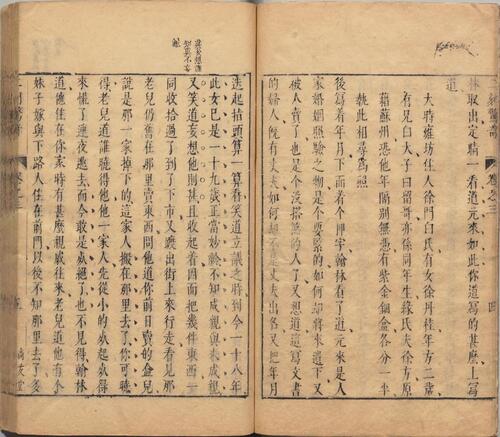 二刻驚奇 卷之三 四
林取出定睛一看道元來如此你道寫的甚麼上寫
道
大時雍坊住人徐門白氏有女徐丹桂年方二歲
有兄白大子曰留哥亦係同年生緣氏夫徐方原
籍蘇州恐他年隔別無憑有紫金鈿盒各分一半
執此相尋爲照
後寫着年月下面着个押字翰林看了道元來是人
家婚姻照驗之物是个要緊的如何却將來遺下又
被人賣了也是个没搭煞的人了又想道這寫文書
的婦人既有丈夫如何却不是丈夫出名又把年月
迭起指頭算一算看笑道立議之時到今一十八年
此女已是一十九歲正當妙齡不知成親與未成親
又笑道妄想他則甚且收起着因而把幾件東西一
同收拾過了到了下市又踱出街上來行走看見那
老兒仍舊在那里賣東西問他道你前日賣的盒兒
說是那一家掉下的這家人搬在那里去了你可曉
得老兒道誰曉得他他一家人先從小的死起死得
來慌了連夜逃去而今敢是死絕了也不見得翰林
道他住在你家時有甚麼親戚往來老兒道他有个
妹子嫁與下路人住在前門以後不知那里去了多
二刻驚奇 卷之三 五 尚友堂